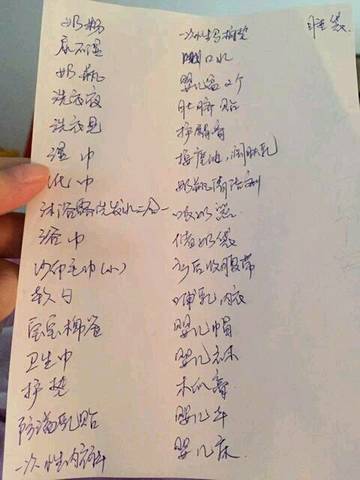 奶粉
尿不湿
奶瓶
洗衣液
洗衣皂
湿巾
纸巾
沐浴露洗发水二合一
浴巾
沙布毛巾(小)
软勺
宝宝棉签
卫生巾
护垫
防溢乳贴
一次性内裤
一次性妈
口水
婴儿 2个
肚脐贴
护臀膏
润肤乳
奶瓶清洁剂
吸奶器
储奶袋
产后收腹带
哺乳内衣
婴儿帽
婴儿衣
木瓜
婴儿车
婴儿床
睡袋